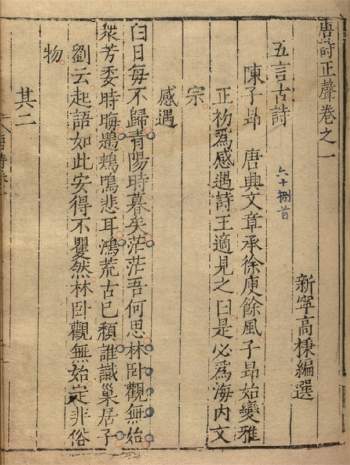 唐詩正聲卷之一
新寧高棅編選
五言古詩
六十捌首
陳子昻 唐興文章承徐庾餘風子昻始變雅
正初爲感遇詩王適見之曰是必爲海内文
宗
感遇
白日每不歸青陽時暮矣茫茫吾何思林卧觀無始
衆芳委時晦鶗鴂鳴悲耳鴻荒古已頹誰識巢居子
劉云起語如此安得不矍然林卧觀無始㝎非俗
物
其二